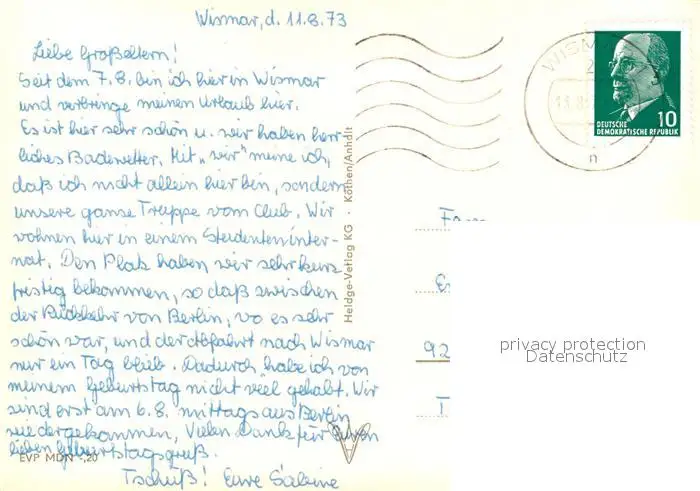 Wismar, d. 11.8.73
Liebe Großeltern!
Seit dem 7.8. bin ich hier in Wismar
und verbringe meinen Urlaub hier.
Es ist hier sehr schön u. wir haben herr-
liches Badewetter. Mit „wir“ meine ich,
daß ich nicht allein hier bin, sondern
unsere ganze Truppe vom Club. Wir
wohnen hier in einem Studenteninter-
nat. Den Platz haben wir sehr kurz
fristig bekommen, so daß zwischen
der Rückkehr von Berlin, wo es sehr
schön war, und der Abfahrt nach Wismar
nur ein Tag blieb. Dadurch habe ich von
meinem Geburtstag nicht viel gehabt. Wir
sind erst am 6.8. mittags aus Berlin
wiedergekommen, Vielen Dank für Euren
lieben Geburtstagsgruß.
Tschüß! Eure Sabine
EVP MDN -,20
Heldge-Verlag KG · Köthen/Anhalt
WISMAR
DEUTSCHE
DEMOKRATISCHE REPUBLIK
10
92
privacy protection
Datenschutz